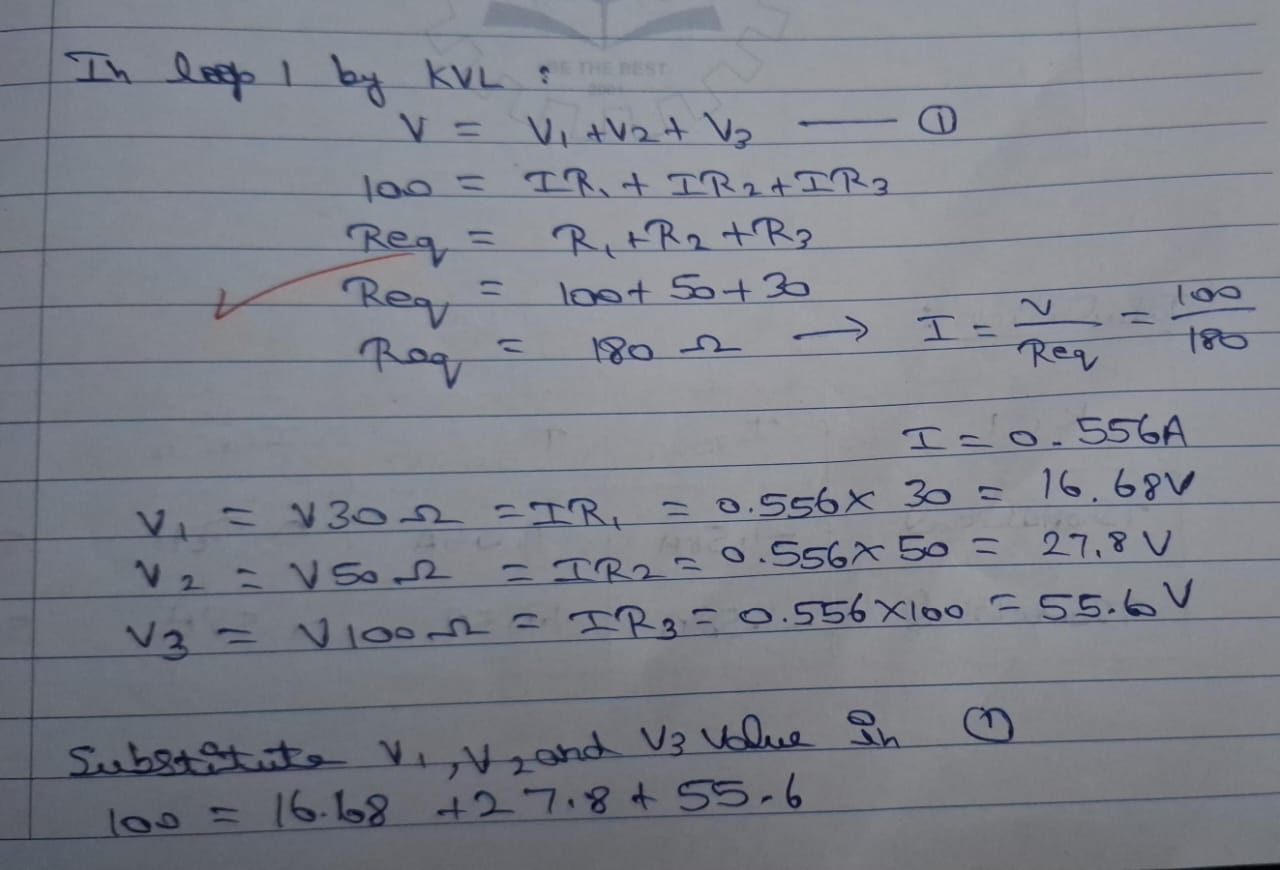 BE THE BEST
In loop 1 by KVL :
V = V1 + V2 + V3 —— ①
100 = IR1 + IR2 + IR3
Req = R1 + R2 + R3
Req = 100 + 50 + 30
Req = 180 Ω → I = V/Req = 100/180
I = 0.556A
V1 = V30Ω = IR1 = 0.556 × 30 = 16.68V
V2 = V50Ω = IR2 = 0.556 × 50 = 27.8 V
V3 = V100Ω = IR3 = 0.556 × 100 = 55.6 V
Substitute V1, V2 and V3 value in ①
100 = 16.68 + 27.8 + 55.6